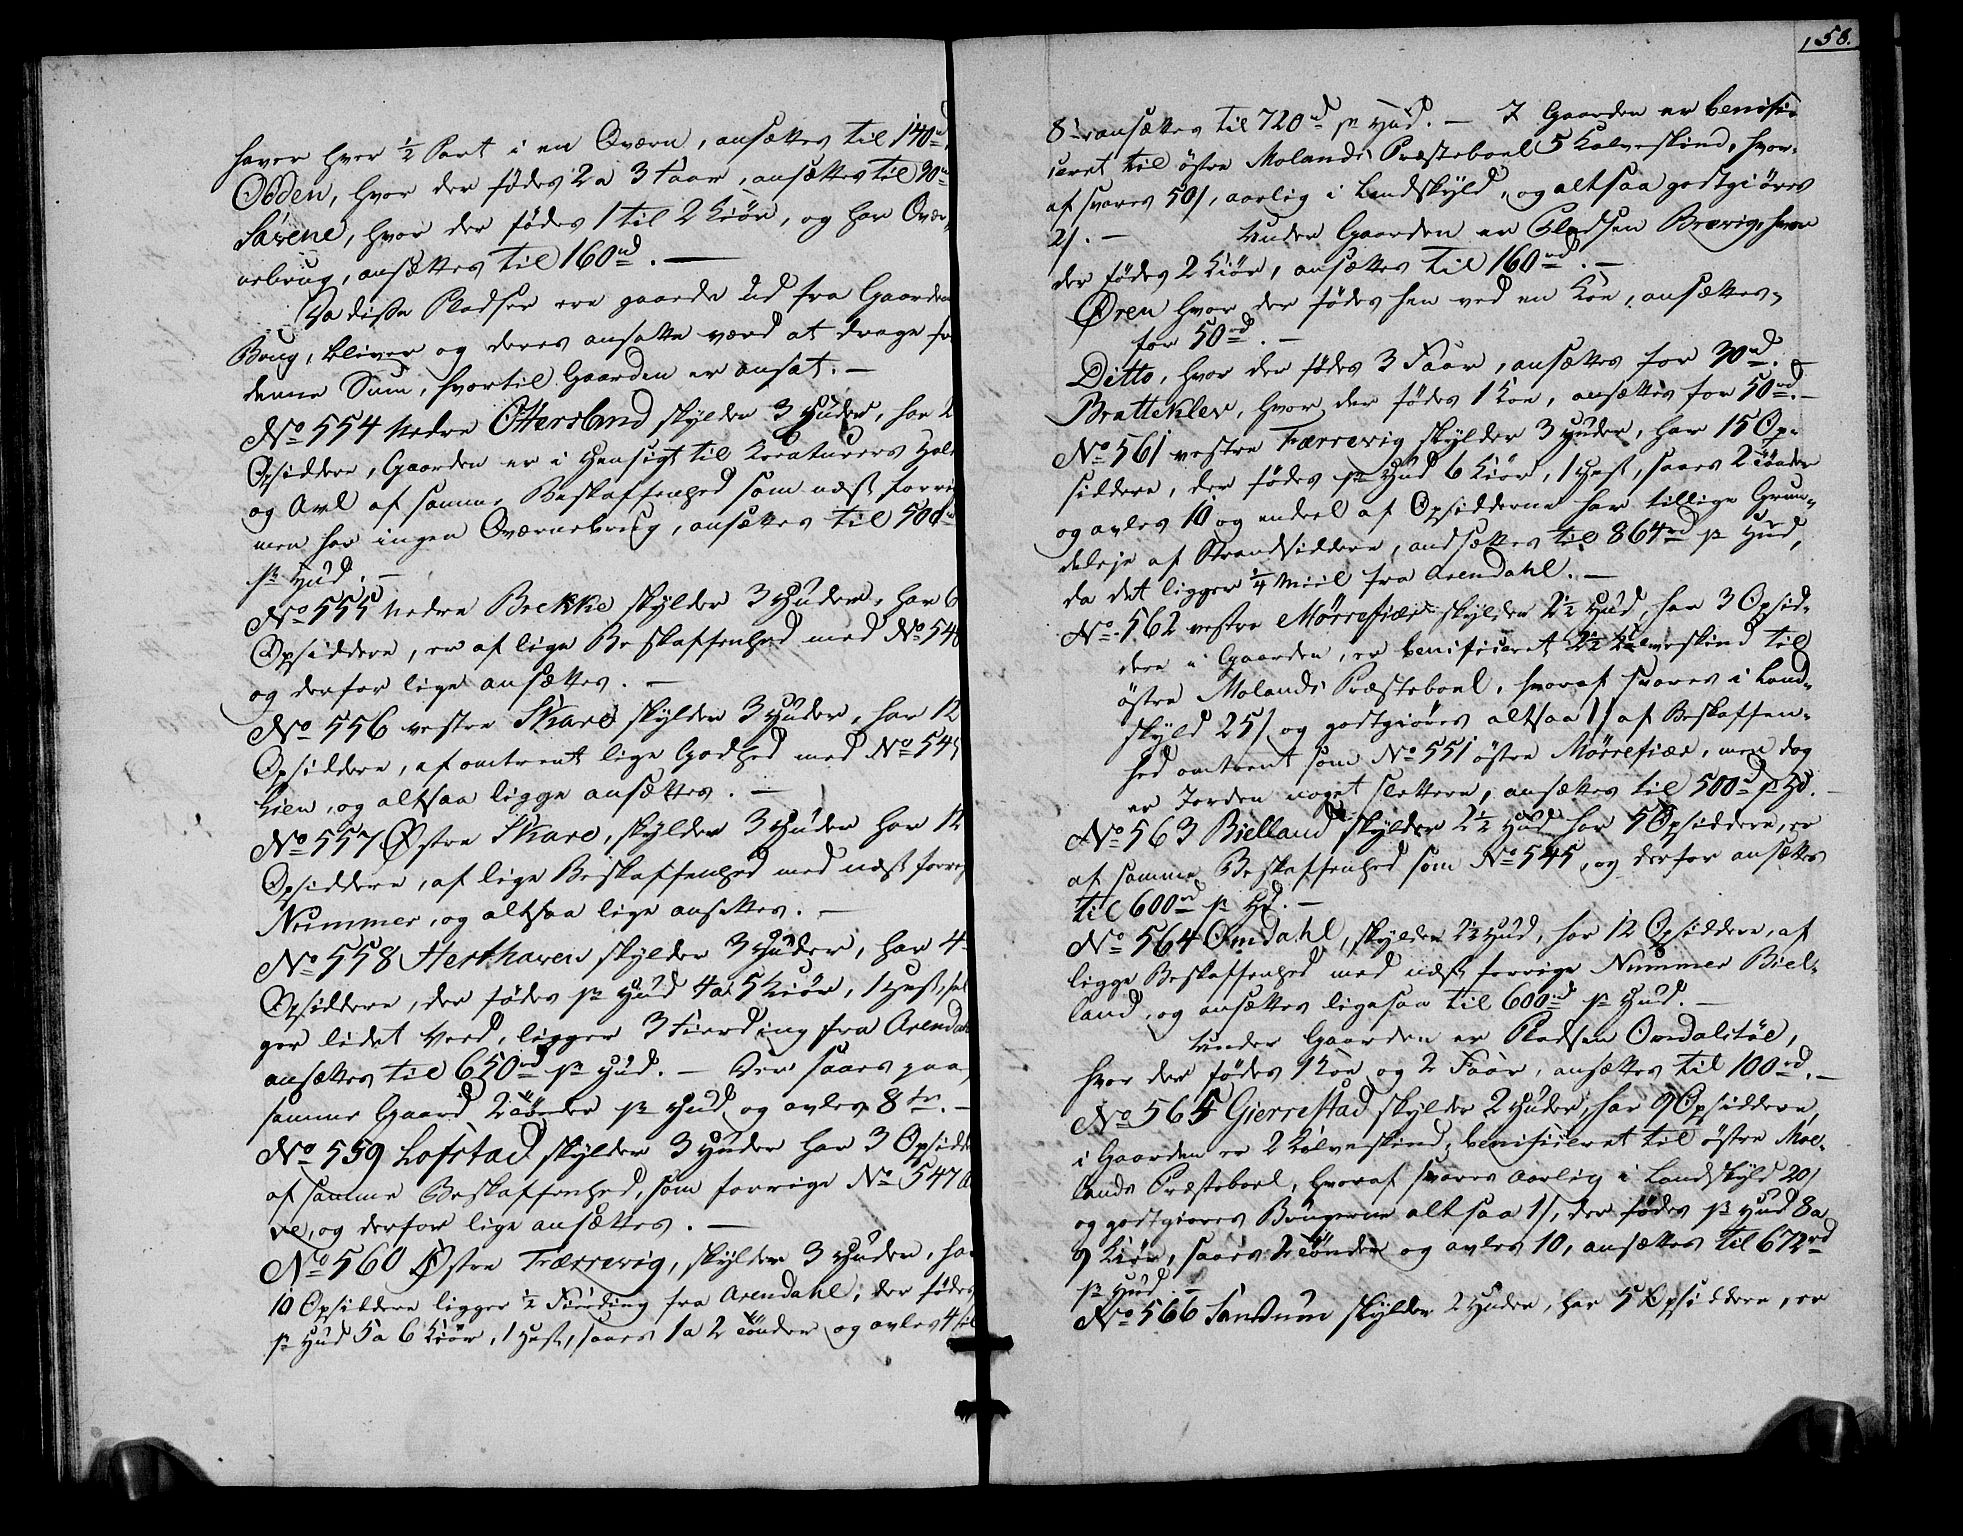 haver hver ½ Part i en Qværn, ansættes til 140rd
Odden, hvor der fødes 2 a 3 Faar, ansættes til 30rd
Savene, hvor der fødes 1 til 2 Kiør, og har Qvær-
nebrug, ansættes til 160rd. —
Da disse Pladser ere gaaede ud fra Gaardens
Brug, bliver og deres ansatte værd at drage fra
denne Sum, hvortil Gaarden er ansat. —
No 554 Nedre Ottersland skylder 3 Huder, har 2
Opsiddere, Gaarden er i Hensigt til Kreaturers Hold
og Avl af samme Beskaffenhed som næst forrige
men har ingen Qværnebrug, ansættes til 500rd
pr Hud. —
No 555 Nedre Bekke skylder 3 Huder, har 6
Opsiddere, er af lige Beskaffenhed med No 546
og derfor lige ansættes. —
No 556 vestre Skare skylder 3 Huder, har 12
Opsiddere, af omtrent lige Godhed med No 545
og altsaa ligge ansættes. —
No 557 Østre Skare, skylder 3 Huder har 12
Opsiddere, af lige Beskaffenhed med næst forrige
Nummer, og altsaa lige ansettes. —
No 558 Herthaven skylder 3 Huder, har 4
Opsiddere, der fødes pr Hud 4 a 5 Kiør, 1 Hest, sæl-
ger lidet Veed, ligger 3 Fierding fra Arendahl
ansættes til 650rd pr Hud. — Der saaes paa
samme Gaard 2 Tønder pr Hud og avles 8 Tr. —
No 559 Lofstad skylder 3 Huder har 3 Opsiddere
af samme Beskaffenhed, som forrige No 547
og derfor lige ansættes. —
No 560 Østre Færrevig, skylder 3 Huder, har
10 Opsiddere ligger ½ Fierding fra Arendahl, der fødes
pr Hud 5 a 6 Kiør, 1 Hest, saaes 1 a 2 Tønder og avles 4 til
158.
8 ansættes til 720rd pr Hud. — I Gaarden er benifi-
ceret til østre Molands Præsteboel 5 Kalveskind, hvor-
af svares 50 s, aarlig i Landskyld, og altsaa godtgiøres
2 s. — Under Gaarden er Pladsen Brævig, hvor
der fødes 2 Kiør, ansættes til 160rd. —
Øren hvor der fødes hen ved en Koe, ansættes
for 50rd. —
Ditto, hvor der fødes 3 Faar, ansættes for 30rd. —
Bratteklev, hvor der fødes 1 Koe, ansættes for 50rd. —
No 561 vestre Færrevig skylder 3 Huder, har 15 Op-
siddere, der fødes pr Hud 6 Kiør, 1 Hest, saaes 2 Tønder
og avles 10 og endeel af Opsidderne har tillige Grun-
deleje af Strandsiddere, andsættes til 864rd pr Hud,
da det ligger ¼ Miil fra Arendahl. —
No 562 vestre Mørrefiær skylder 2½ Hud, har 3 Opsid-
dere i Gaarden, er benificeret 2½ Kalveskind til
østre Molands Præsteboel, hvoraf svares i Land-
skyld 25 s og godtgiøres altsaa 1 s af Beskaffen-
hed omtrent som No 551 østre Mørrefiær, men dog
er Jorden noget slettere, ansættes til 500rd pr Hd. —
No 563 Bielland skylder 2½ Hud har 5 Opsiddere, er
af samme Beskaffenhed som No 545, og derfor ansættes
til 600rd pr Hd. —
No 564 Omdahl, skylder 2½ Hud, har 12 Opsiddere, af
ligge Beskaffenhed med næst forrige Nummer Biel-
land, og ansættes ligesaa til 600rd pr Hud. —
Under Gaarden er Pladsen Omdalstøe,
hvor der fødes 1 Koe og 2 Faar, ansættes til 100rd. —
No 565 Gierrestad skylder 2 Huder, har 9 Opsiddere,
i Gaarden er 2 Kalveskind, benificeret til østre Mo-
lands Præsteboel, hvoraf svares aarlig i Landskyld 20 s
og godtgiøres Brugerne altsaa 1 s, der fødes pr Hud 8 a
9 Kiør, saaes 2 Tønder og avles 10, ansættes til 672rd
pr Hud. —
No 566 Sandum skylder 2 Huder, har 5 Opsiddere, er